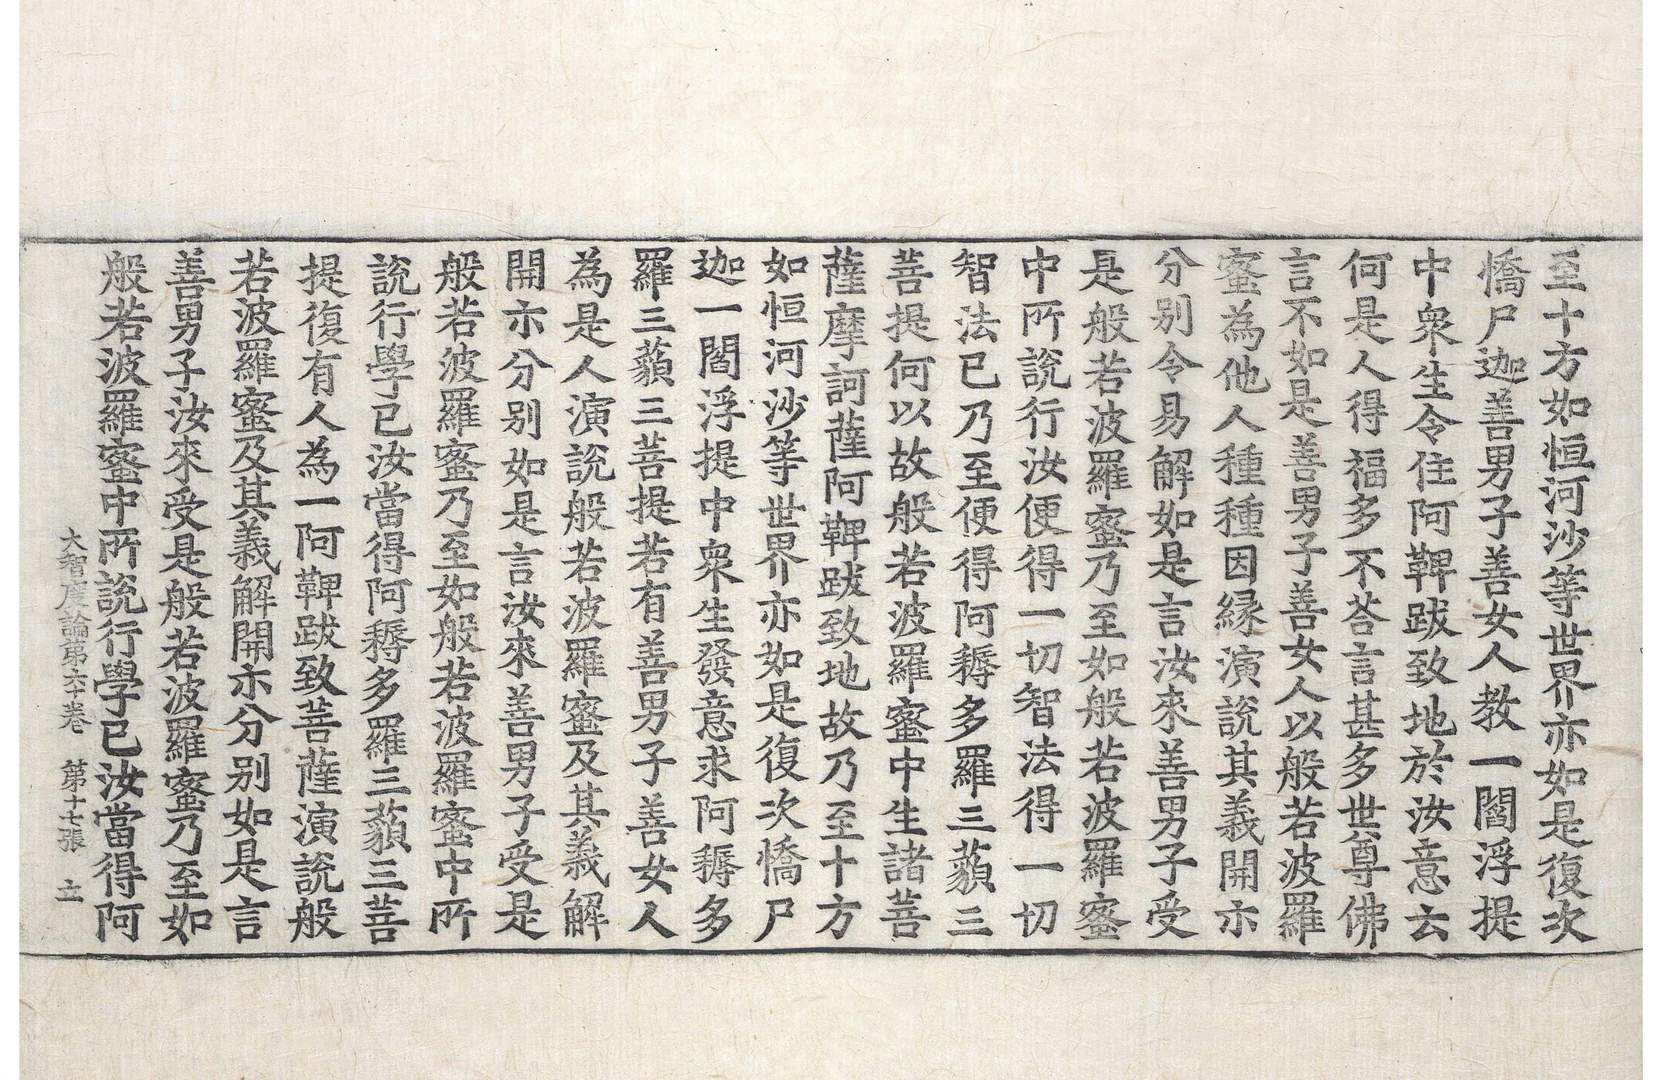 至十方如恒河沙等世界亦如是復次
憍尸迦善男子善女人教一閻浮提
中衆生令住阿鞞跋致地於汝意云
何是人得福多不荅言甚多世尊佛
言不如是善男子善女人以般若波羅
蜜為他人種種因縁演說其義開示
分别令易解如是言汝來善男子受
是般若波羅蜜乃至如般若波羅蜜
中所說行汝便得一切智法得一切
智法已乃至便得阿耨多羅三藐三
菩提何以故般若波羅蜜中生諸菩
薩摩訶薩阿鞞跋致地故乃至十方
如恒河沙等世界亦如是復次憍尸
迦一閻浮提中衆生發意求阿耨多
羅三藐三菩提若有善男子善女人
為是人演說般若波羅蜜及其義解
開示分别如是言汝來善男子受是
般若波羅蜜乃至如般若波羅蜜中所
說行學已汝當得阿耨多羅三藐三菩
提復有人為一阿鞞跋致菩薩演說般
若波羅蜜及其義解開示分别如是言
善男子汝來受是般若波羅蜜乃至如
般若波羅蜜中所說行學已汝當得阿
大智度論第六十卷 第十七張 土